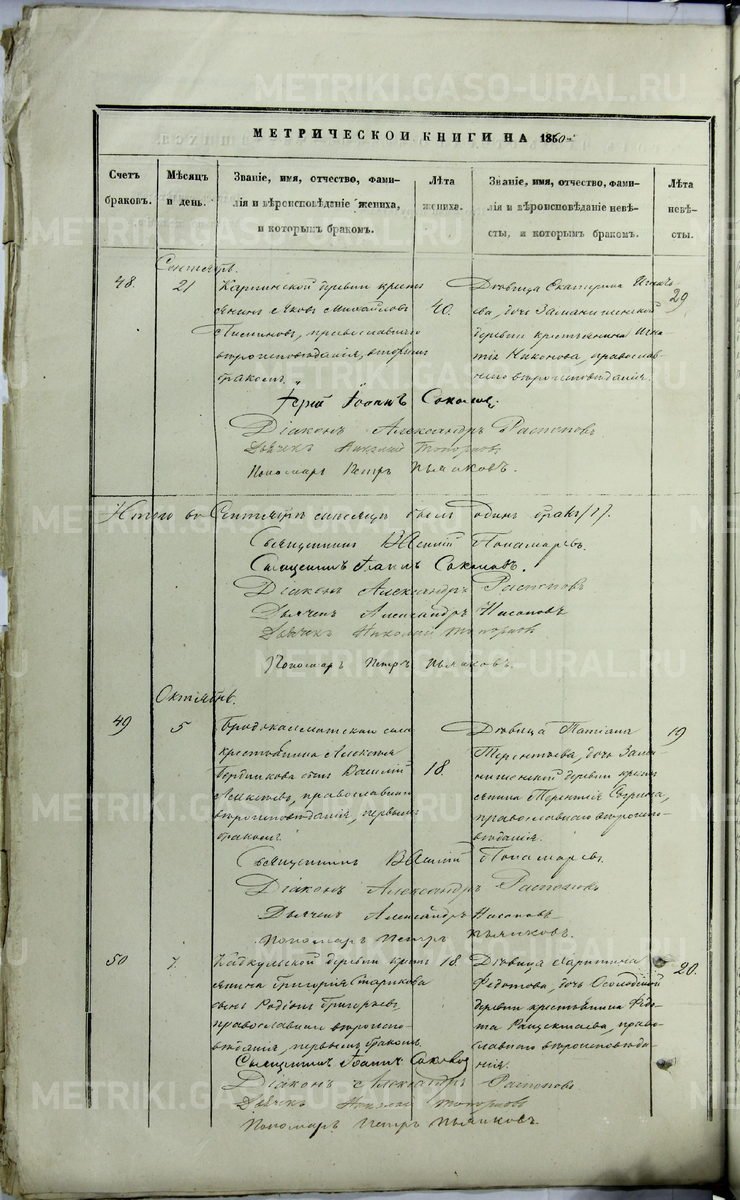 МЕТРИЧЕСКОЙ КНИГИ НА 1860й
Счетъ браковъ.
Мѣсяцъ и день.
Званіе, имя, отчество, фамилія и вѣроисповѣданіе жениха, и которымъ бракомъ.
Лѣта жениха.
Званіе, имя, отчество, фамилія и вѣроисповѣданіе невѣсты, и которымъ бракомъ.
Лѣта невѣсты.
Сентябрь.
48.
21
деревни кресть
янинъ Яковъ Михайловъ
православнаго
вѣроисповѣданія, вторымъ
бракомъ.
40.
Дѣвица Екатерина Игнать
ева, дочь
деревни крестьянина Игна
тія Никонова, православ
наго вѣроисповѣданія.
29
Іерей Іоаннъ Соколовъ.
Діаконъ Александръ Распоповъ
Дьячекъ Николай Топорковъ
Пономарь Петръ
Итого въ Сентябрѣ мѣсяцѣ былъ одинъ бракъ /1/.
Священникъ Василій Понамаревъ.
Священникъ Іоаннъ Соколовъ.
Діаконъ Александръ Распоповъ
Дьячекъ Александръ Насоновъ
Дьячекъ Николай Топорковъ
Пономарь Петръ
Октябрь.
49
5
Бродокалматскаго села
крестьянина Алексѣя
сынъ Василій
Алексѣевъ, православнаго
вѣроисповѣданія, первымъ
бракомъ.
18.
Дѣвица Татіана
Терентьева, дочь
деревни кресть
янина Терентія
православнаго вѣроиспо
вѣданія.
19
Священникъ Василій Понамаревъ.
Діаконъ Александръ Распоповъ
Дьячекъ Александръ Насоновъ
Пономарь Петръ
50
7.
деревни кресть
янина Григорія Старикова
сынъ Родіонъ Григорьевъ,
православнаго вѣроиспо
вѣданія, первымъ бракомъ.
18.
Дѣвица Харитина
Федотова, дочь
деревни крестьянина Федо
та право
славнаго вѣроисповѣда
нія.
20.
Священникъ Іоаннъ Соколовъ
Діаконъ Александръ Распоповъ
Дьячекъ Николай Топорковъ
Пономарь Петръ
METRIKI.GASO-URAL.RU